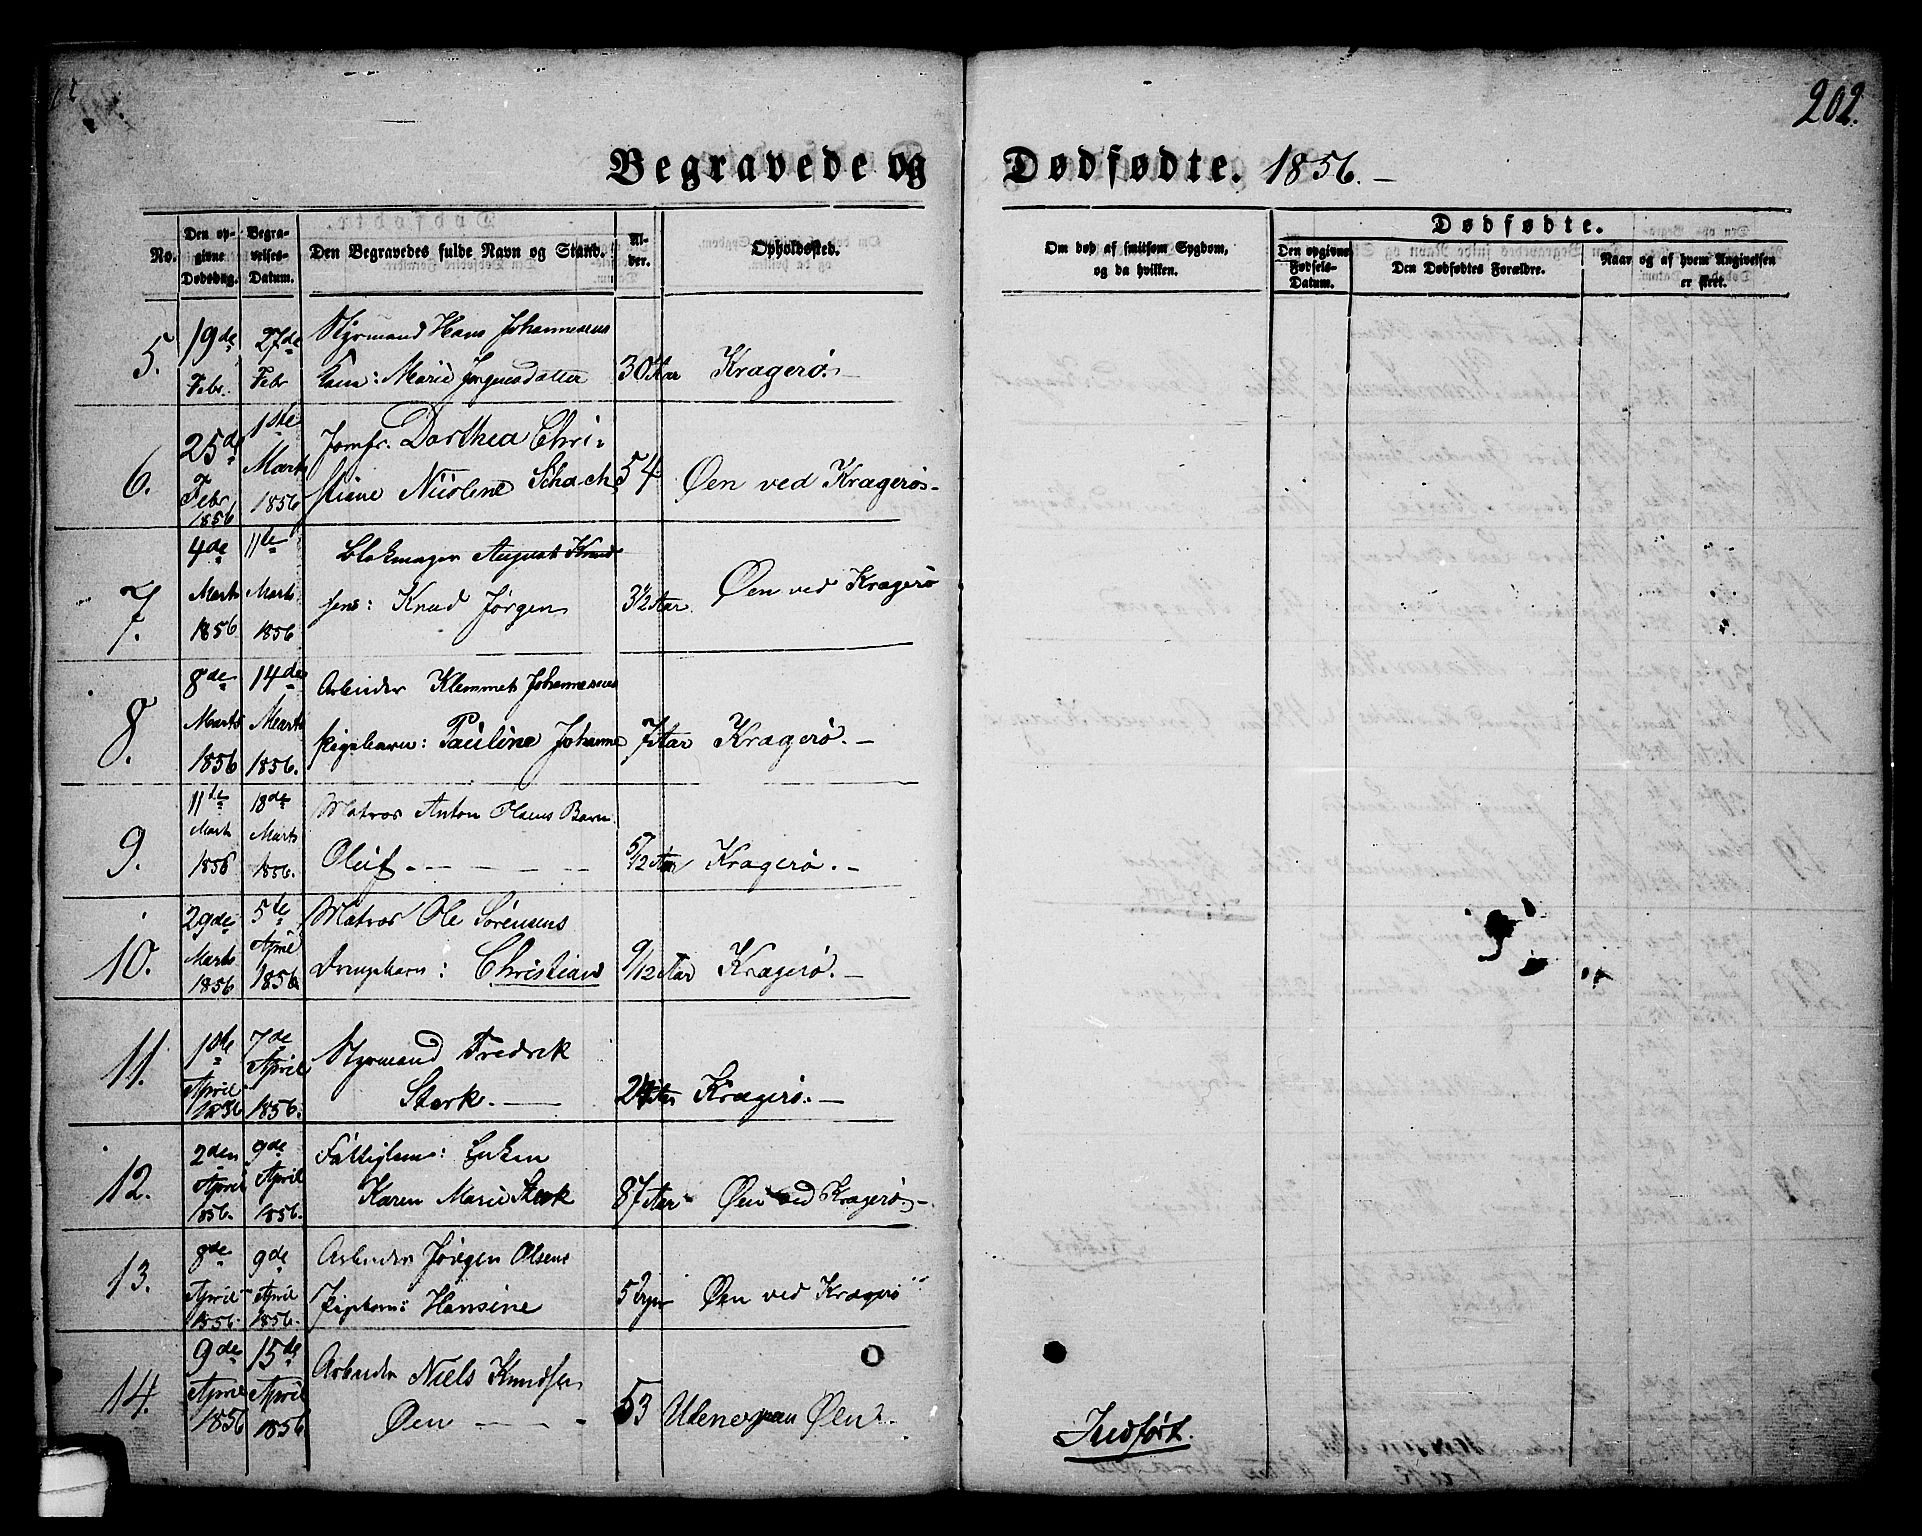 202.
Begravede og Dødfødte. 1856. —
No.
Den opgivne Dødsdag.
Begravelses-Datum.
Den Begravedes fulde Navn og Stand.
Alder.
Opholdssted.
Om død af smitsom Sygdom, og da hvilken.
Dødfødte.
Den opgivne Fødsels-Datum.
Den Dødfødtes Forældre.
Naar og af hvem Angivelsen er skeet.
5. 19de Febr. 27de Febr Styrmand Hans Johannesens
Kone: Marie Jørgensdatter 30 Aar Kragerø. —
6. 25de Febr 1856 1ste Marts 1856 Jomfr. Dorthea Chri-
stiane Nicoline Schach 54 Øen ved Kragerø. -
7. 4de Marts 1856 11te Marts 1856 Blokmager August Knud-
sens: Knud Jørgen 3½ Aar Øen ved Kragerø
8. 8de Marts 1856 14de Marts 1856. Arbeider Klemmet Johannesens
Pigebarn: Pauline Johanne 7 Aar Kragerø. —
9. 11te Marts 1856 18de Marts 1856. Matros Anton Olsens Barn
Oluf. — — — 5/12 Aar Kragerø. —
10. 29de Marts 1856 5te April 1856 Matros Ole Sørensens
Drengebarn: Christian 9/12 Aar Kragerø. —
11. 1ste April 1856 7de April 1856. Styrmand Fredrik
Stærk. — Aar Kragerø. —
12. 2den April 1856. 9de April 1856. Fattiglem: Enken
Karen Marie Stærk 87 Aar Øen ved Kragerø. —
13. 8de April 1856. 9de April 1856. Arbeider Jørgen Olsens
Pigebarn: Hansine 5 Øen ved Kragerø
14. 9de April 1856 15de April 1856 Arbeider Niels Knudsen
Øen — — - 53 Øen. -
Indført.